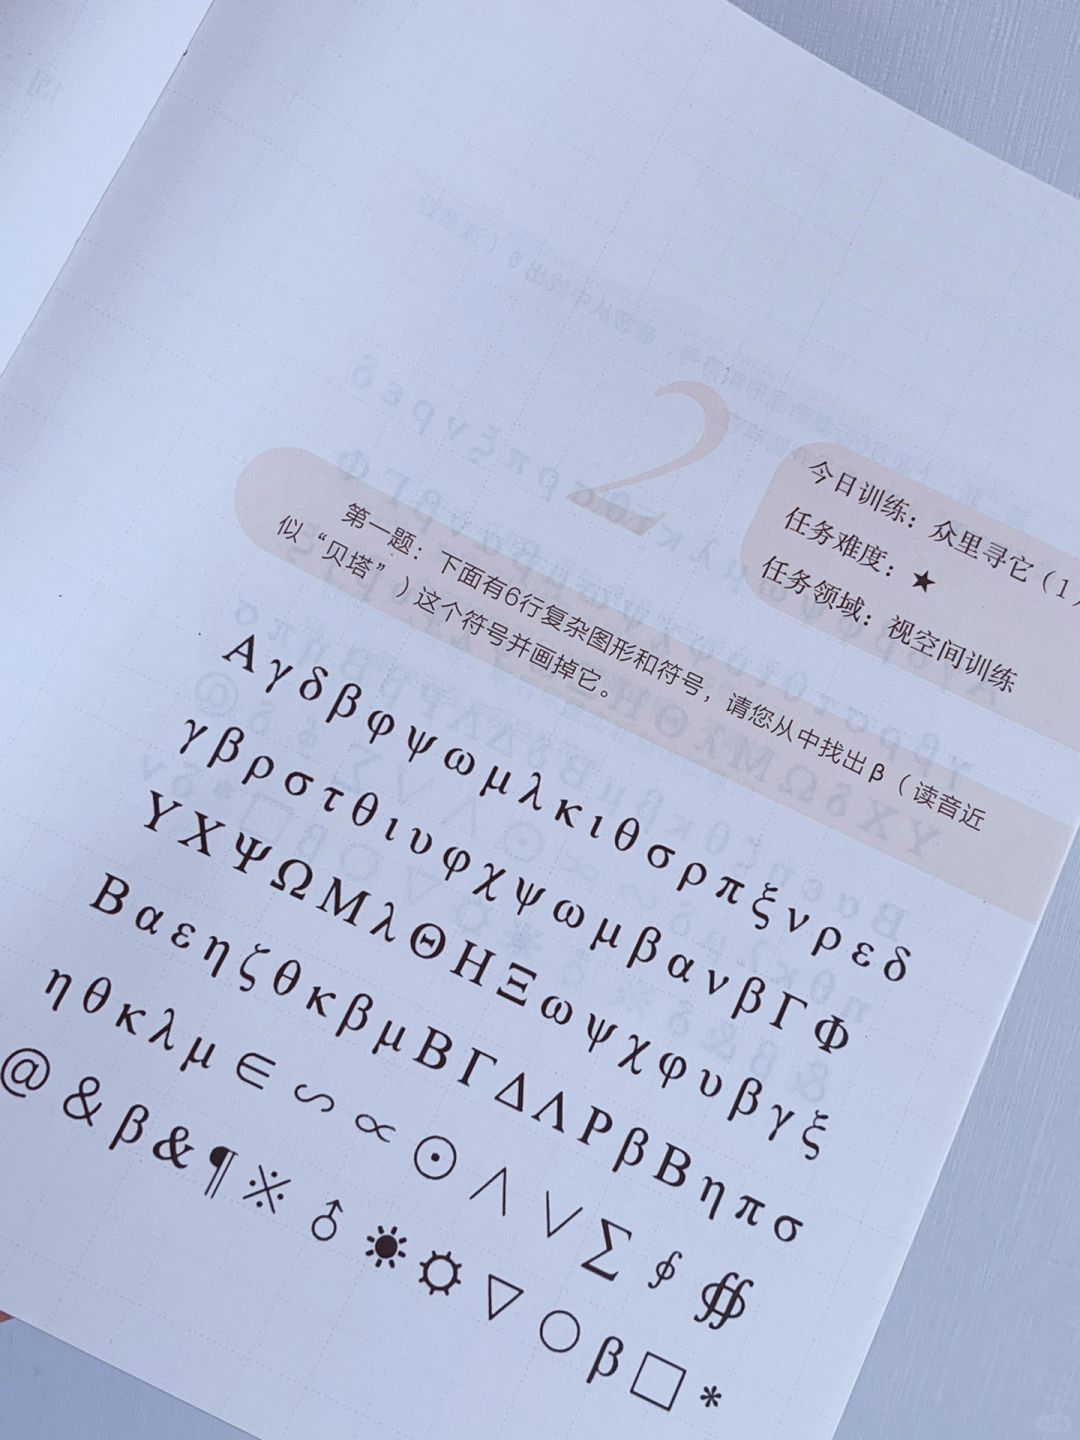 2
今日训练：众里寻它（1）
任务难度：★
任务领域：视空间训练
第一题：下面有6行复杂图形和符号，请您从中找出β（读音近
似“贝塔”）这个符号并画掉它。
Α γ δ β φ ψ ω μ λ κ ι θ σ ρ π ξ ν ρ ε δ
γ β ρ σ τ θ ι υ φ χ ψ ω μ β α ν β Γ Φ
Υ Χ Ψ Ω Μ λ Θ Η Ξ ω ψ χ φ υ β γ ξ
Β α ε η ζ θ κ β μ Β Γ Δ Λ Ρ β Β η π σ
η θ κ λ μ ∈ ∽ ∝ ⊙ ∧ ∨ ∑ ∮ ∯
@ & β & ¶ ※ ♂ ☀ ☼ ▽ ○ β □ *